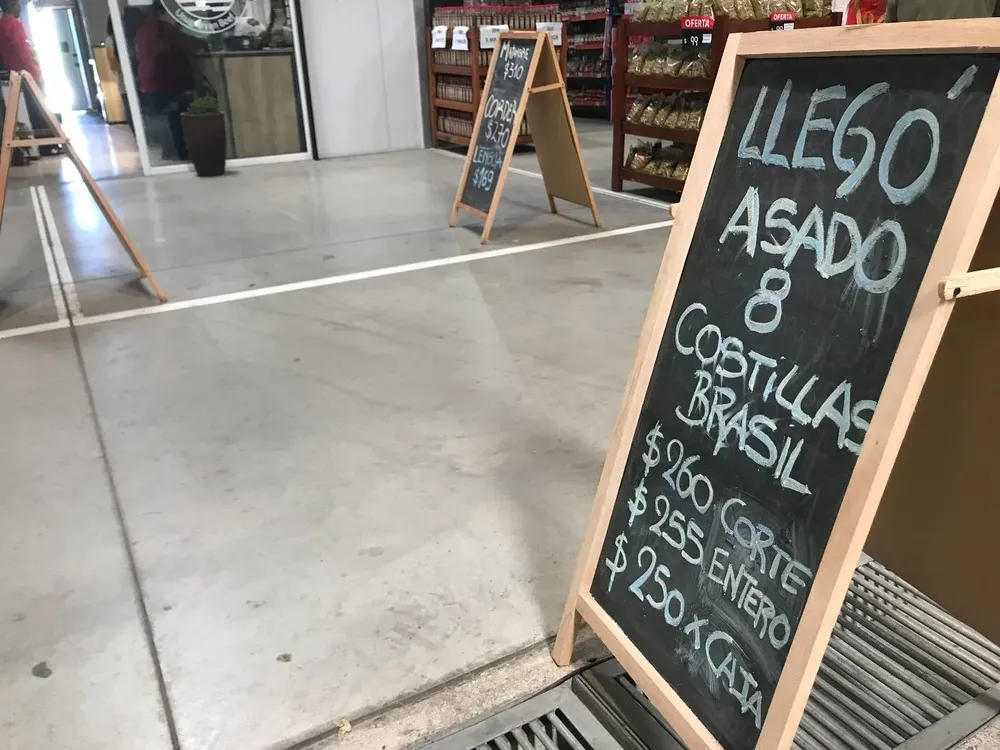 LLEGÓ
ASADO
8
COSTILLAS
BRASIL
$260 CORTE
$255 ENTERO
$250 x CAJA
MATAMBRE
$310
CORDER
$270
LENGUA
$169
OFERTA
99
OFERTA